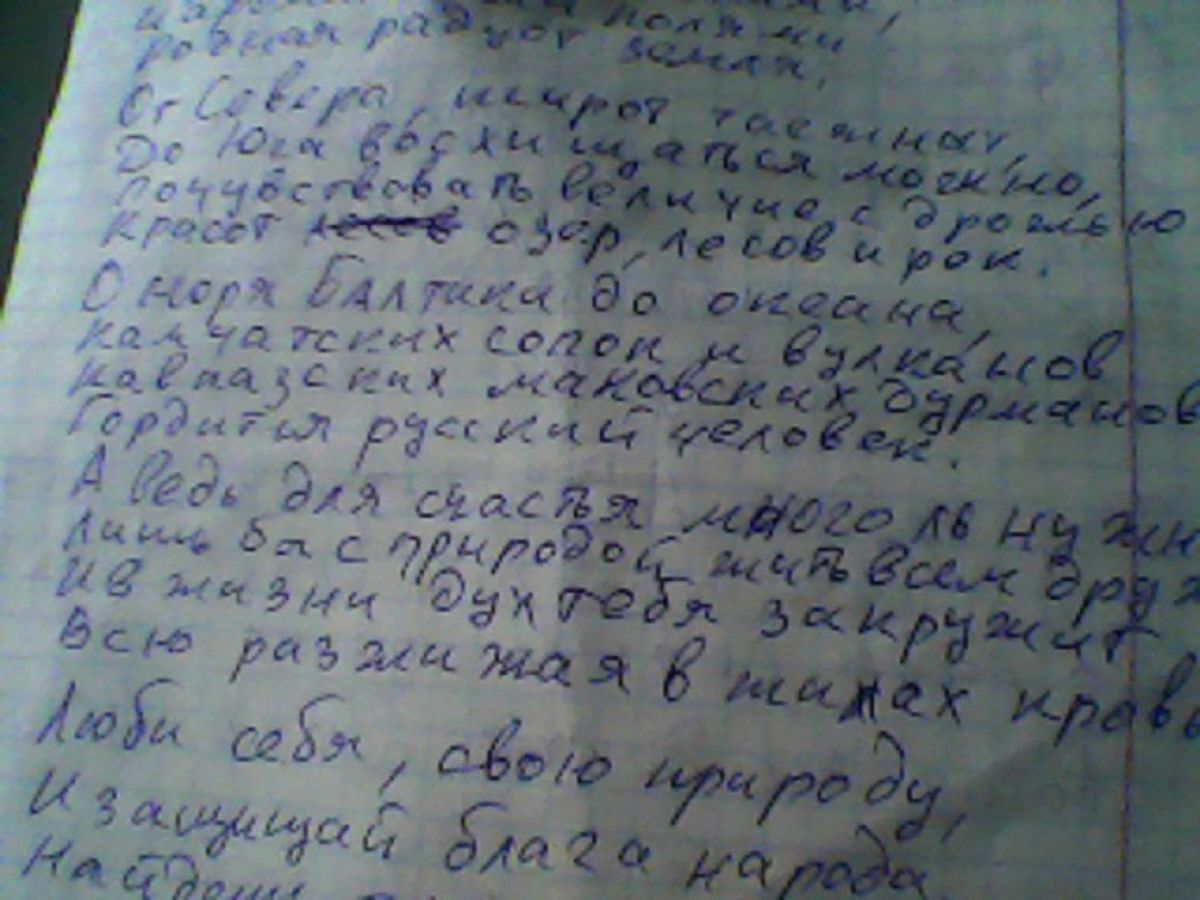 полями
родная радует земля.
От Севера, широт таежных,
До Юга восхищаться можно,
почувствовать величие с дрожью
красот озер, лесов и рек.
О моря Балтики до океана,
камчатских сопок и вулканов
кавказских маковских дурманов
Гордится русский человек.
А ведь для счастья много ль нужн
лишь бы с природой жить всем друж
И в жизни дух тебя закружит
Всю разжижая в жилах кровь
Люби себя, свою природу,
И защищай блага народа